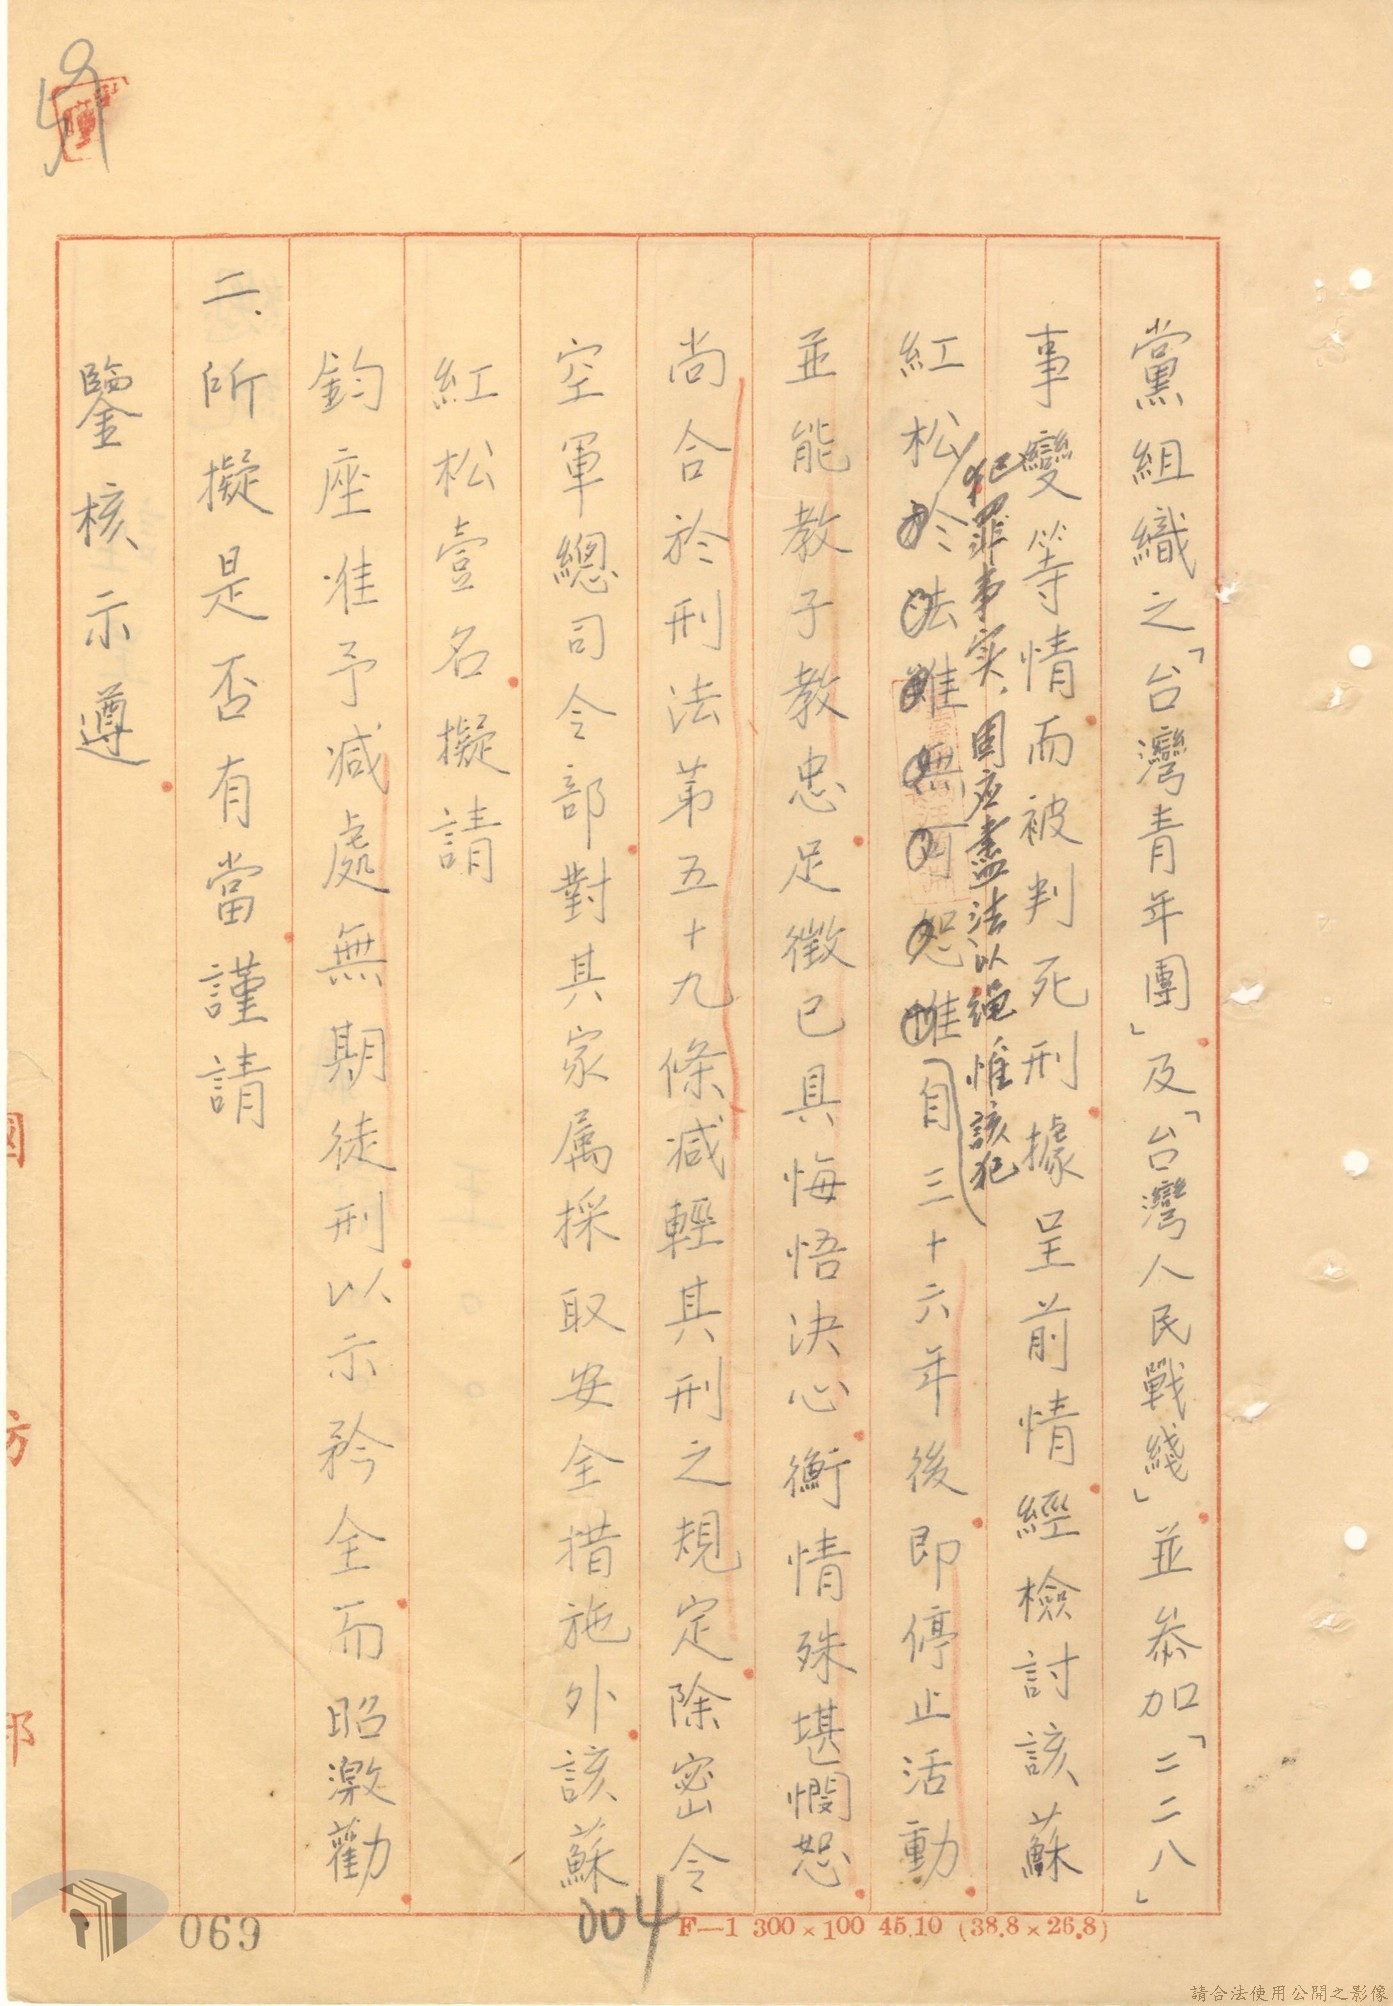 黨組織之「台灣青年團」及「台灣人民戰綫」並參加「二二八」
事變等情而被判死刑據呈前情經檢討該蘇
犯罪事实，固应盡法以绳惟該犯
紅松於法雖無可恕惟自三十六年後即停止活動
並能教子教忠足徵已具悔悟決心衡情殊堪憫恕
尚合於刑法第五十九條減輕其刑之規定除密令
空軍總司令部對其家属採取安全措施外該蘇
紅松壹名擬請
鈞座准予減處無期徒刑以示矜全而昭激勸
二、所擬是否有當謹請
鑒核示遵
國防部
069
004
F—1 300×100 45.10 (38.8×26.8)
請合法使用公開之影像